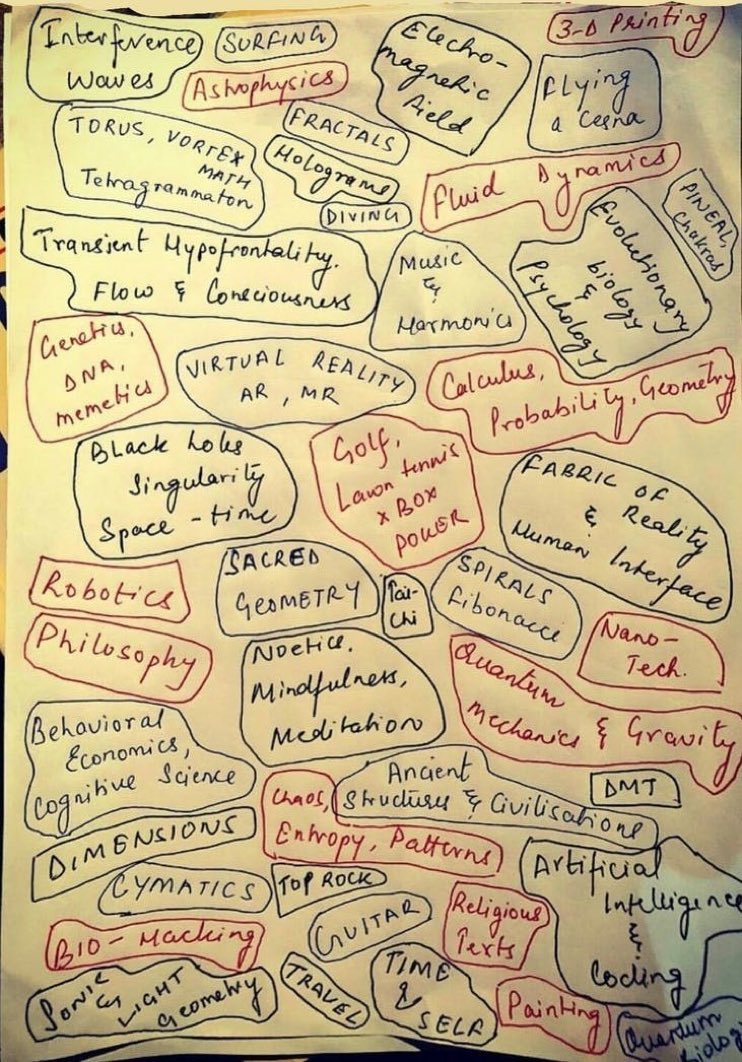 Interference
Waves
SURFING
Electro-
magnetic
field
3-D Printing
Astrophysics
Flying
a Cesna
TORUS, VORTEX
MATH
Tetragrammaton
FRACTALS
Holograms
DIVING
Fluid Dynamics
PINEAL,
Chakras
Transient Hypofrontality.
Flow & Consciousness
Music
&
Harmonics
Evolutionary
biology
&
Psychology
Genetics,
DNA,
memetics
VIRTUAL REALITY
AR, MR
Calculus,
Probability, Geometry
Black holes
Singularity
Space-time
Golf,
Lawn tennis
XBOX
POWER
FABRIC OF
& Reality
Human Interface
Robotics
SACRED
GEOMETRY
Tai-
Chi
SPIRALS
Fibonacci
Nano-
Tech.
Philosophy
Noetics.
Mindfulness,
Meditation
Quantum
Mechanics & Gravity
Behavioral
Economics,
Cognitive Science
Ancient
Structures & Civilisations
DMT
Chaos,
Entropy, Patterns
DIMENSIONS
CYMATICS
TOP ROCK
Artificial
Intelligence
&
Coding
BIO-Hacking
GUITAR
Religious
Texts
SONIC
& LIGHT
Geometry
TRAVEL
TIME
&
SELF
Painting
Quantum